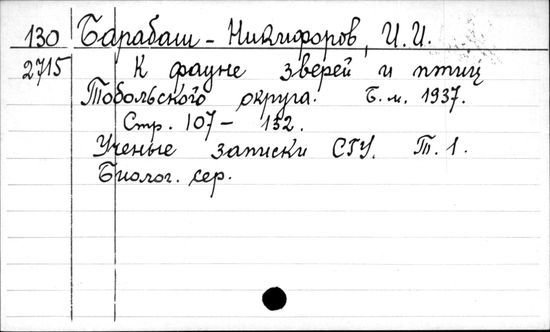 130 Барабаш-Никифоров, И.И.
2715 К фауне зверей и птиц
Тобольского округа. Б.м. 1937.
Стр. 107 – 132.
Ученые записки СГУ. Т. 1.
Биолог. сер.